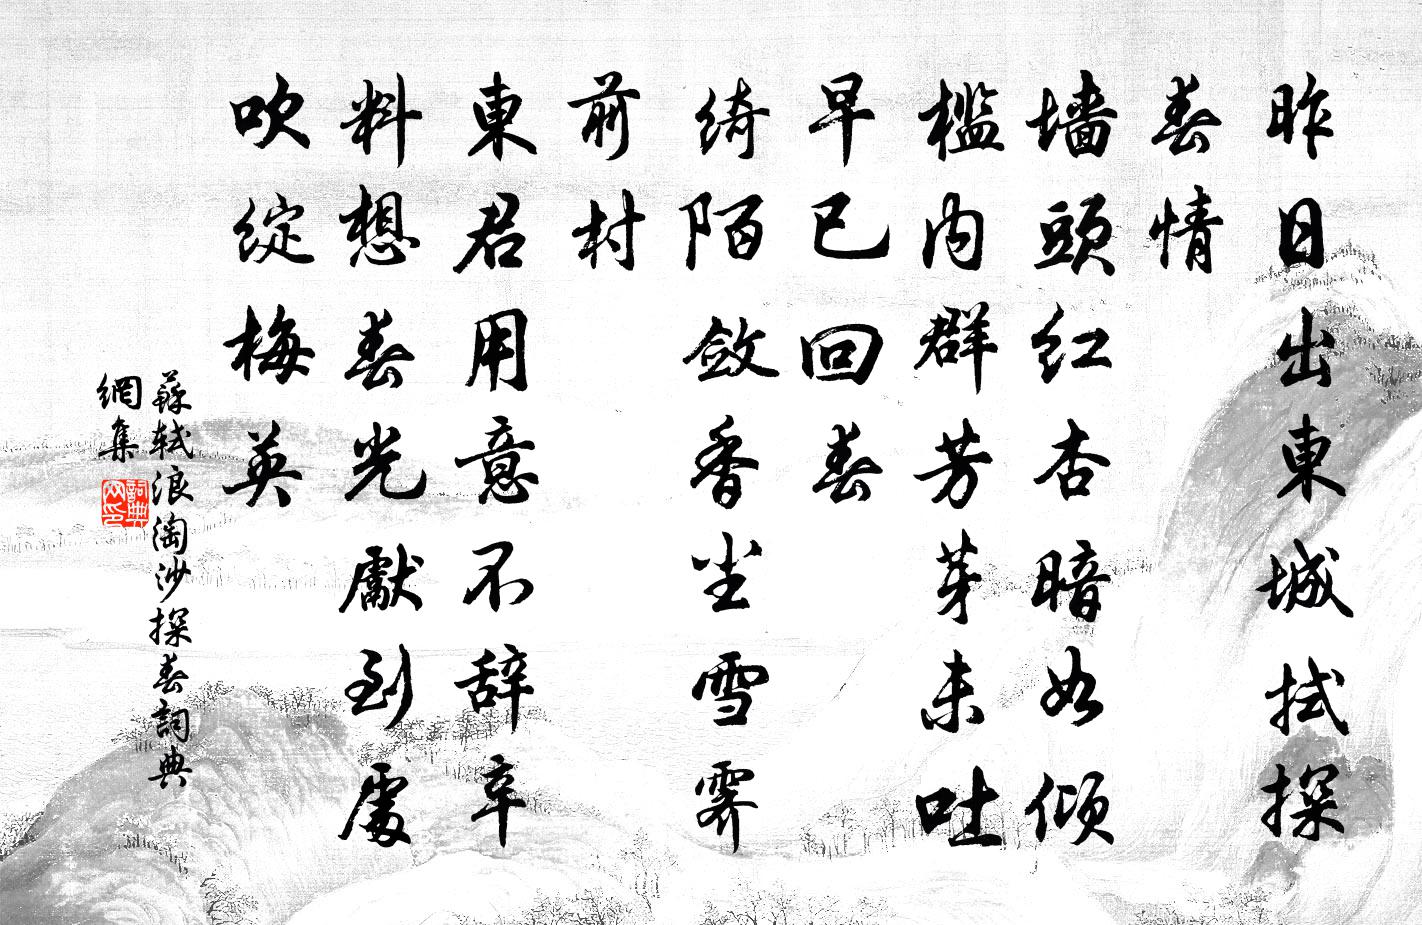 昨日出東城拭探
春情
墻頭红杏暗如倾
檻内群芳芽未吐
早已回春
綺陌敛香尘雪霽
前村
東君用意不辞辛
料想春光獻到處
吹綻梅英
蘇軾浪淘沙探春詞典
網集
詞典網印